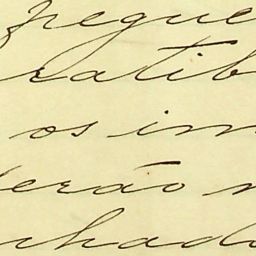 pegue
ratib
os im
erão n
chado